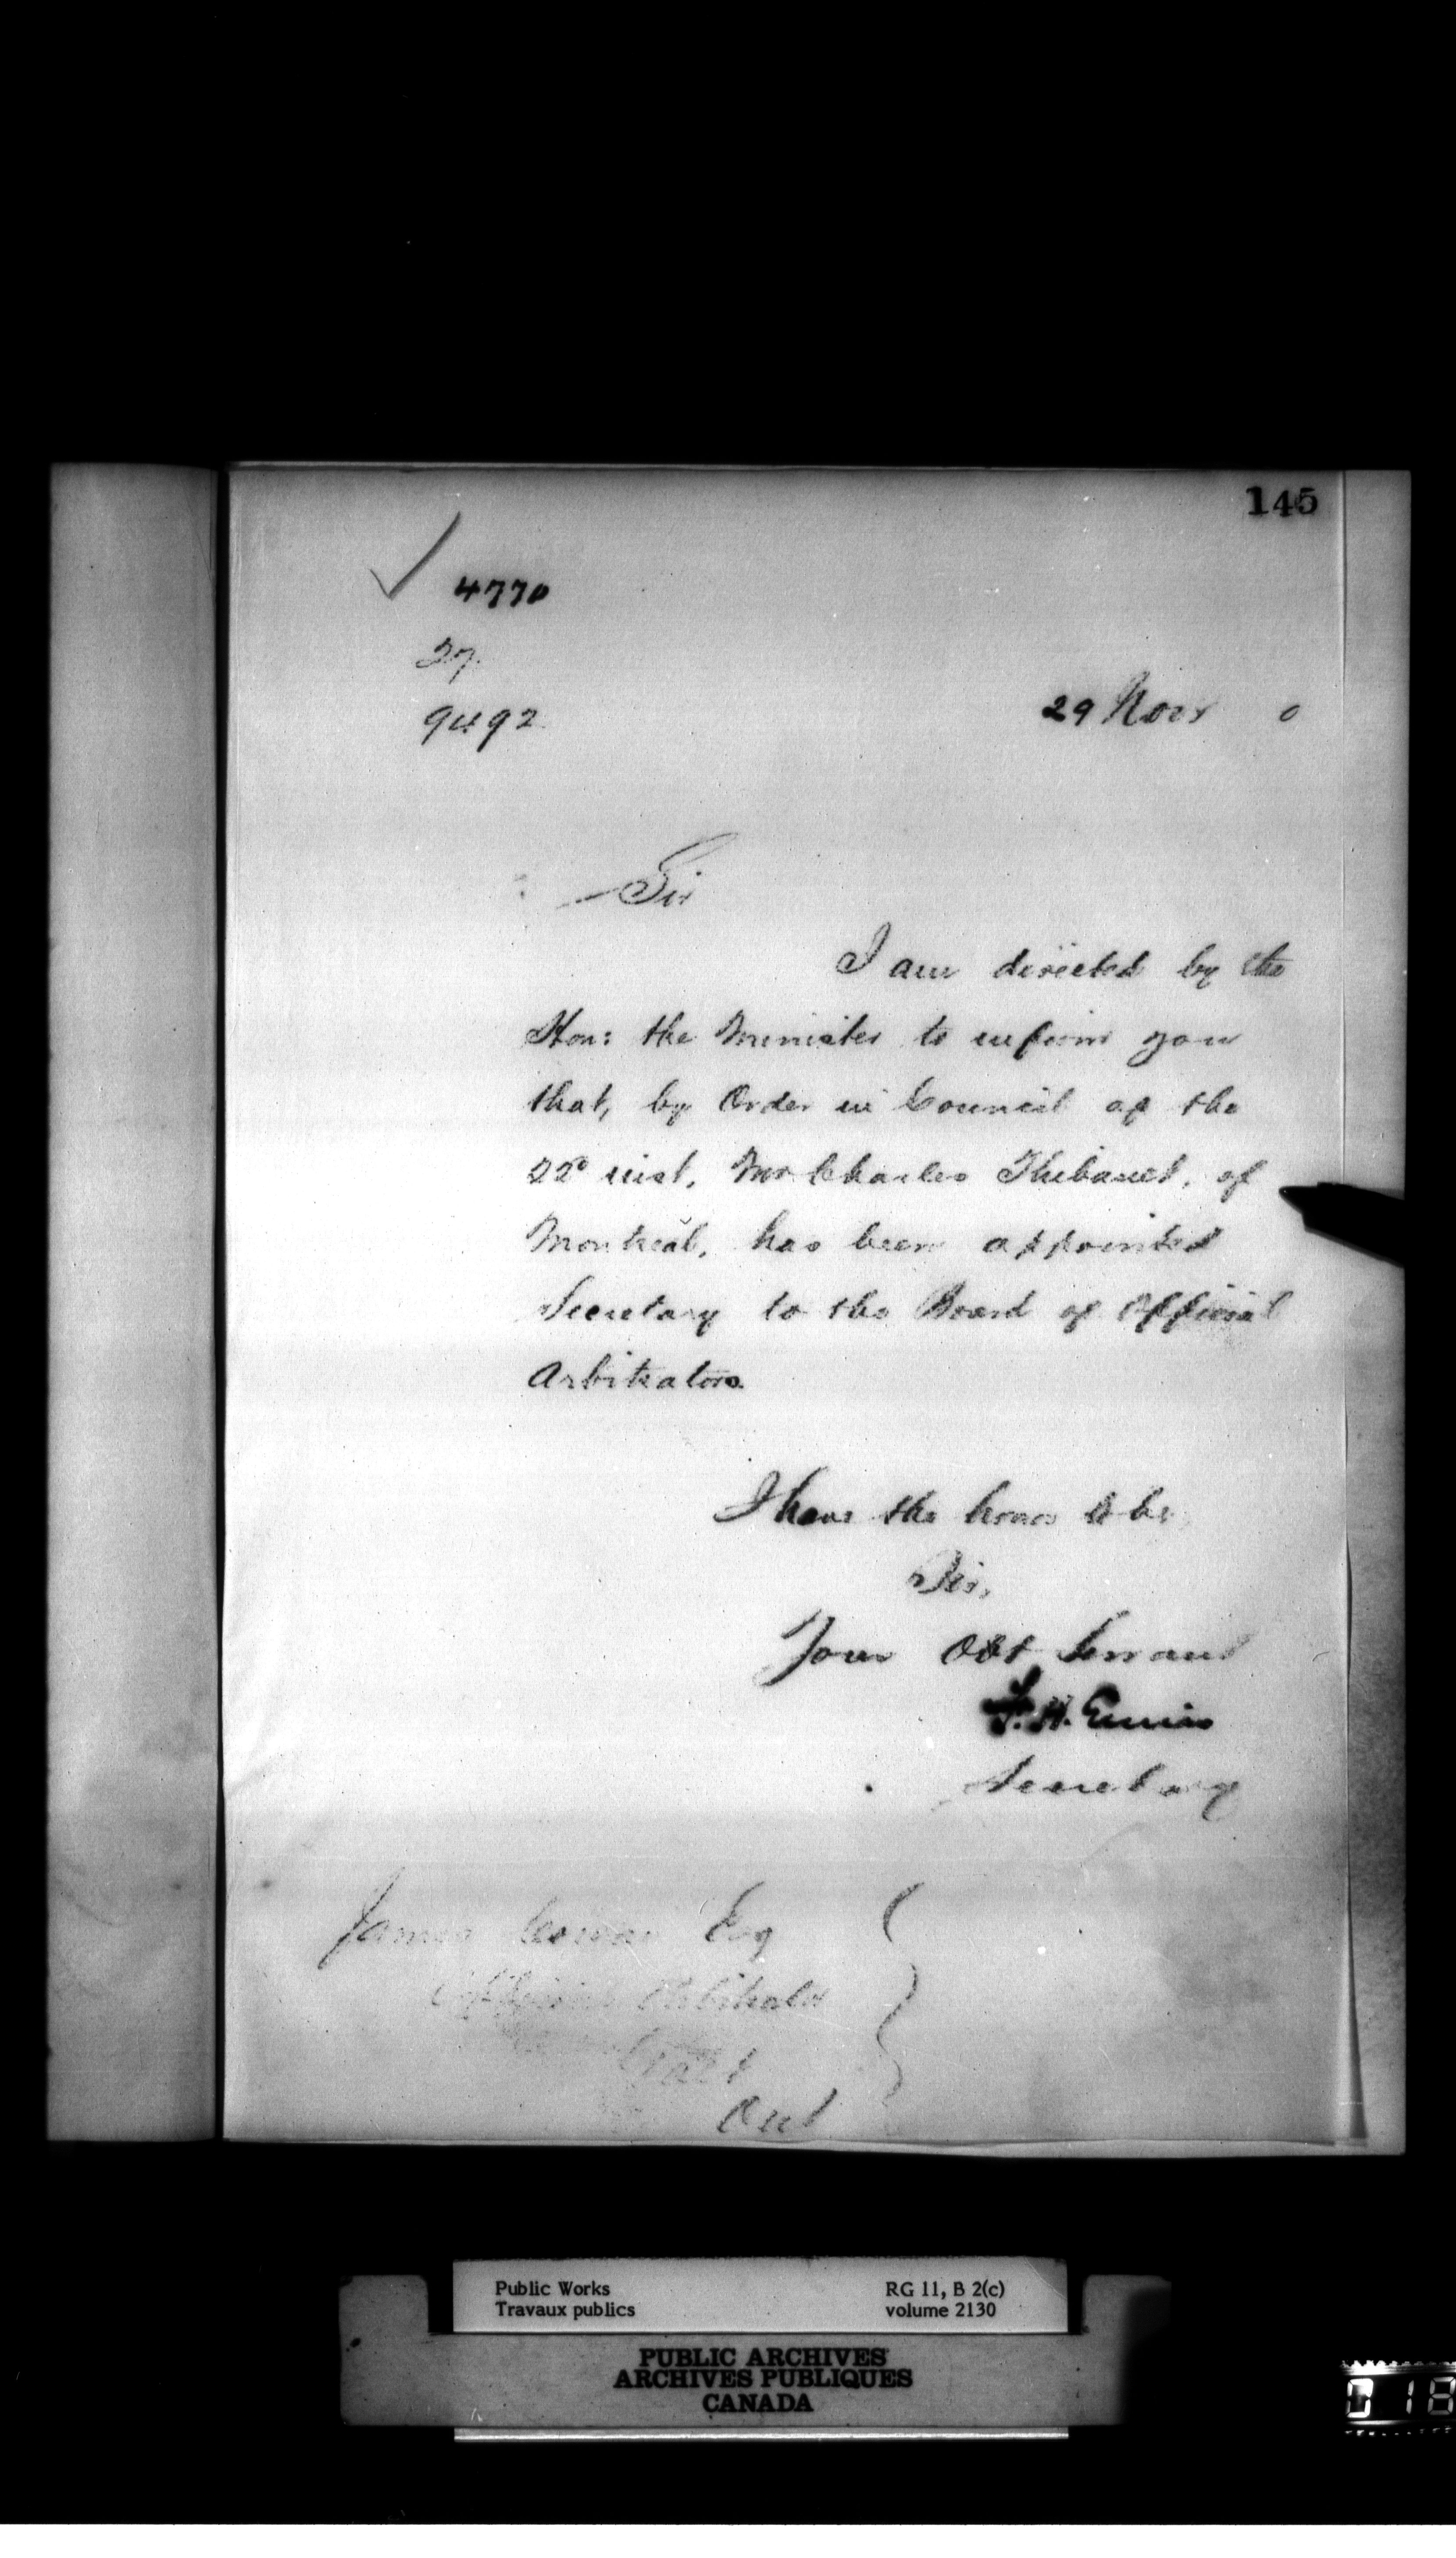 145
4770
27.
9492
29 Novr 0
Sir
I am directed by the
Hon: the Minister to inform you
that, by Order in Council of the
22d inst, Mr Charles Thibault, of
Montreal, has been appointed
Secretary to the Board of Official
Arbitrators.
I have the honor to be,
Sir,
Your Obt Servant
F. H. Ennis
Secretary
James Cowan Esq
Official Arbitrator
Galt
Ont
Public Works
Travaux publics
RG 11, B 2(c)
volume 2130
PUBLIC ARCHIVES
ARCHIVES PUBLIQUES
CANADA